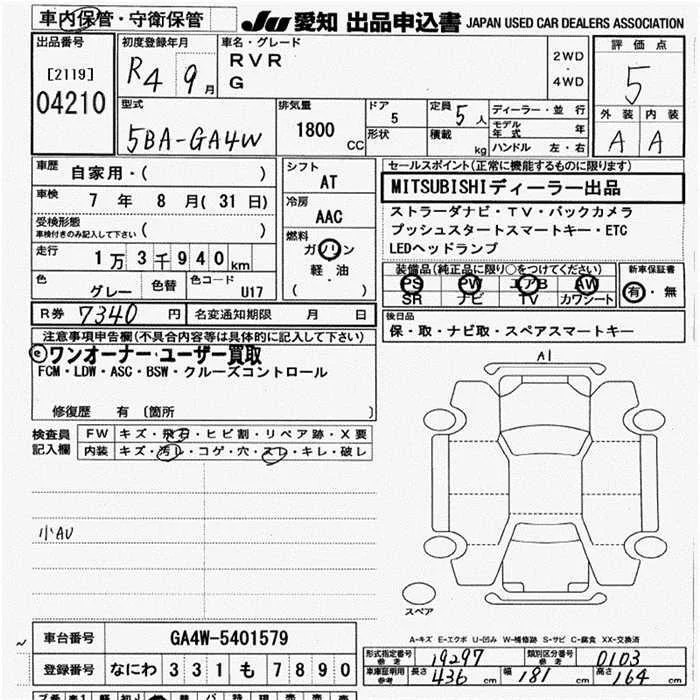 車内保管・守衛保管
JU 愛知 出品申込書 JAPAN USED CAR DEALERS ASSOCIATION
出品番号
[2119]
04210
初度登録年月
R4 9月
車名・グレード
RVR
G
2WD
・
4WD
評価点
5
外装 内装
A A
型式
5BA-GA4W
排気量
1800 CC
ドア
5
形状
定員 5人
積載 kg
ディーラー・並行
モデル年式 年
ハンドル 左・右
車歴 自家用・( )
車検 7年 8月(31日)
受検形態
車検付きのみ記入して下さい ( )
走行 1万3千940km
色 グレー 色替 色コード U17
シフト
AT
冷房
AAC
燃料
ガソリン
軽・油
( )
セールスポイント(正常に機能するものに限ります)
MITSUBISHIディーラー出品
ストラーダナビ・TV・バックカメラ
プッシュスタートスマートキー・ETC
LEDヘッドランプ
装備品(純正品に限り○をつけてください)
PS PW エアB AW
SR ナビ TV カワシート
新車保証書
有・無
R券 7340円 名変通知期限 月 日
後日品
保・取・ナビ取・スペアスマートキー
注意事項申告欄(不具合内容等は具体的に記入して下さい)
ⓔワンオーナー・ユーザー買取
FCM・LDW・ASC・BSW・クルーズコントロール
修復歴 有〔箇所 〕
検査員
記入欄
FW キズ・飛石・ヒビ割・リペア跡・X要
内装 キズ・汚レ・コゲ・穴・スレ・キレ・破レ
小AU
A1
スペア
A-キズ E-エクボ U-凹み W-補修跡 S-サビ C-腐食 XX-交換済
車台番号 GA4W-5401579
登録番号 なにわ 331 も 7890
形式指定番号 参考 19297 類別区分番号 参考 0103
車庫証明用 参考 長さ 436cm 幅 181cm 高さ 164cm